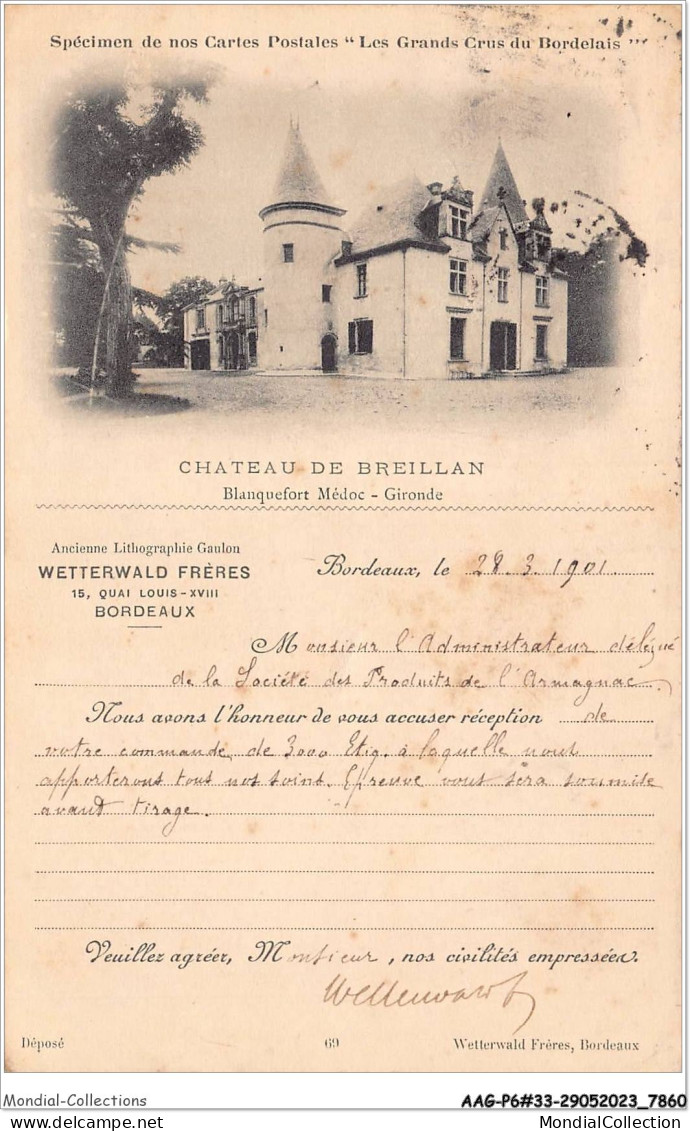 Spécimen de nos Cartes Postales "Les Grands Crus du Bordelais"
CHATEAU DE BREILLAN
Blanquefort Médoc - Gironde
Ancienne Lithographie Gaulon
WETTERWALD FRÈRES
15, QUAI LOUIS-XVIII
BORDEAUX
Bordeaux, le 28.3.1901
Monsieur l'Administrateur délégué
de la Société des Produits de l'Armagnac
Nous avons l'honneur de vous accuser réception de
votre commande de 3000 Etiq. à laquelle nous
apporterons tous nos soins. Epreuve vous sera soumise
avant tirage.
Veuillez agréer, Monsieur, nos civilités empressées.
Wetterwald
Déposé
69
Wetterwald Frères, Bordeaux
Mondial-Collections
AAG-P6#33-29052023_7860
MondialCollection.com